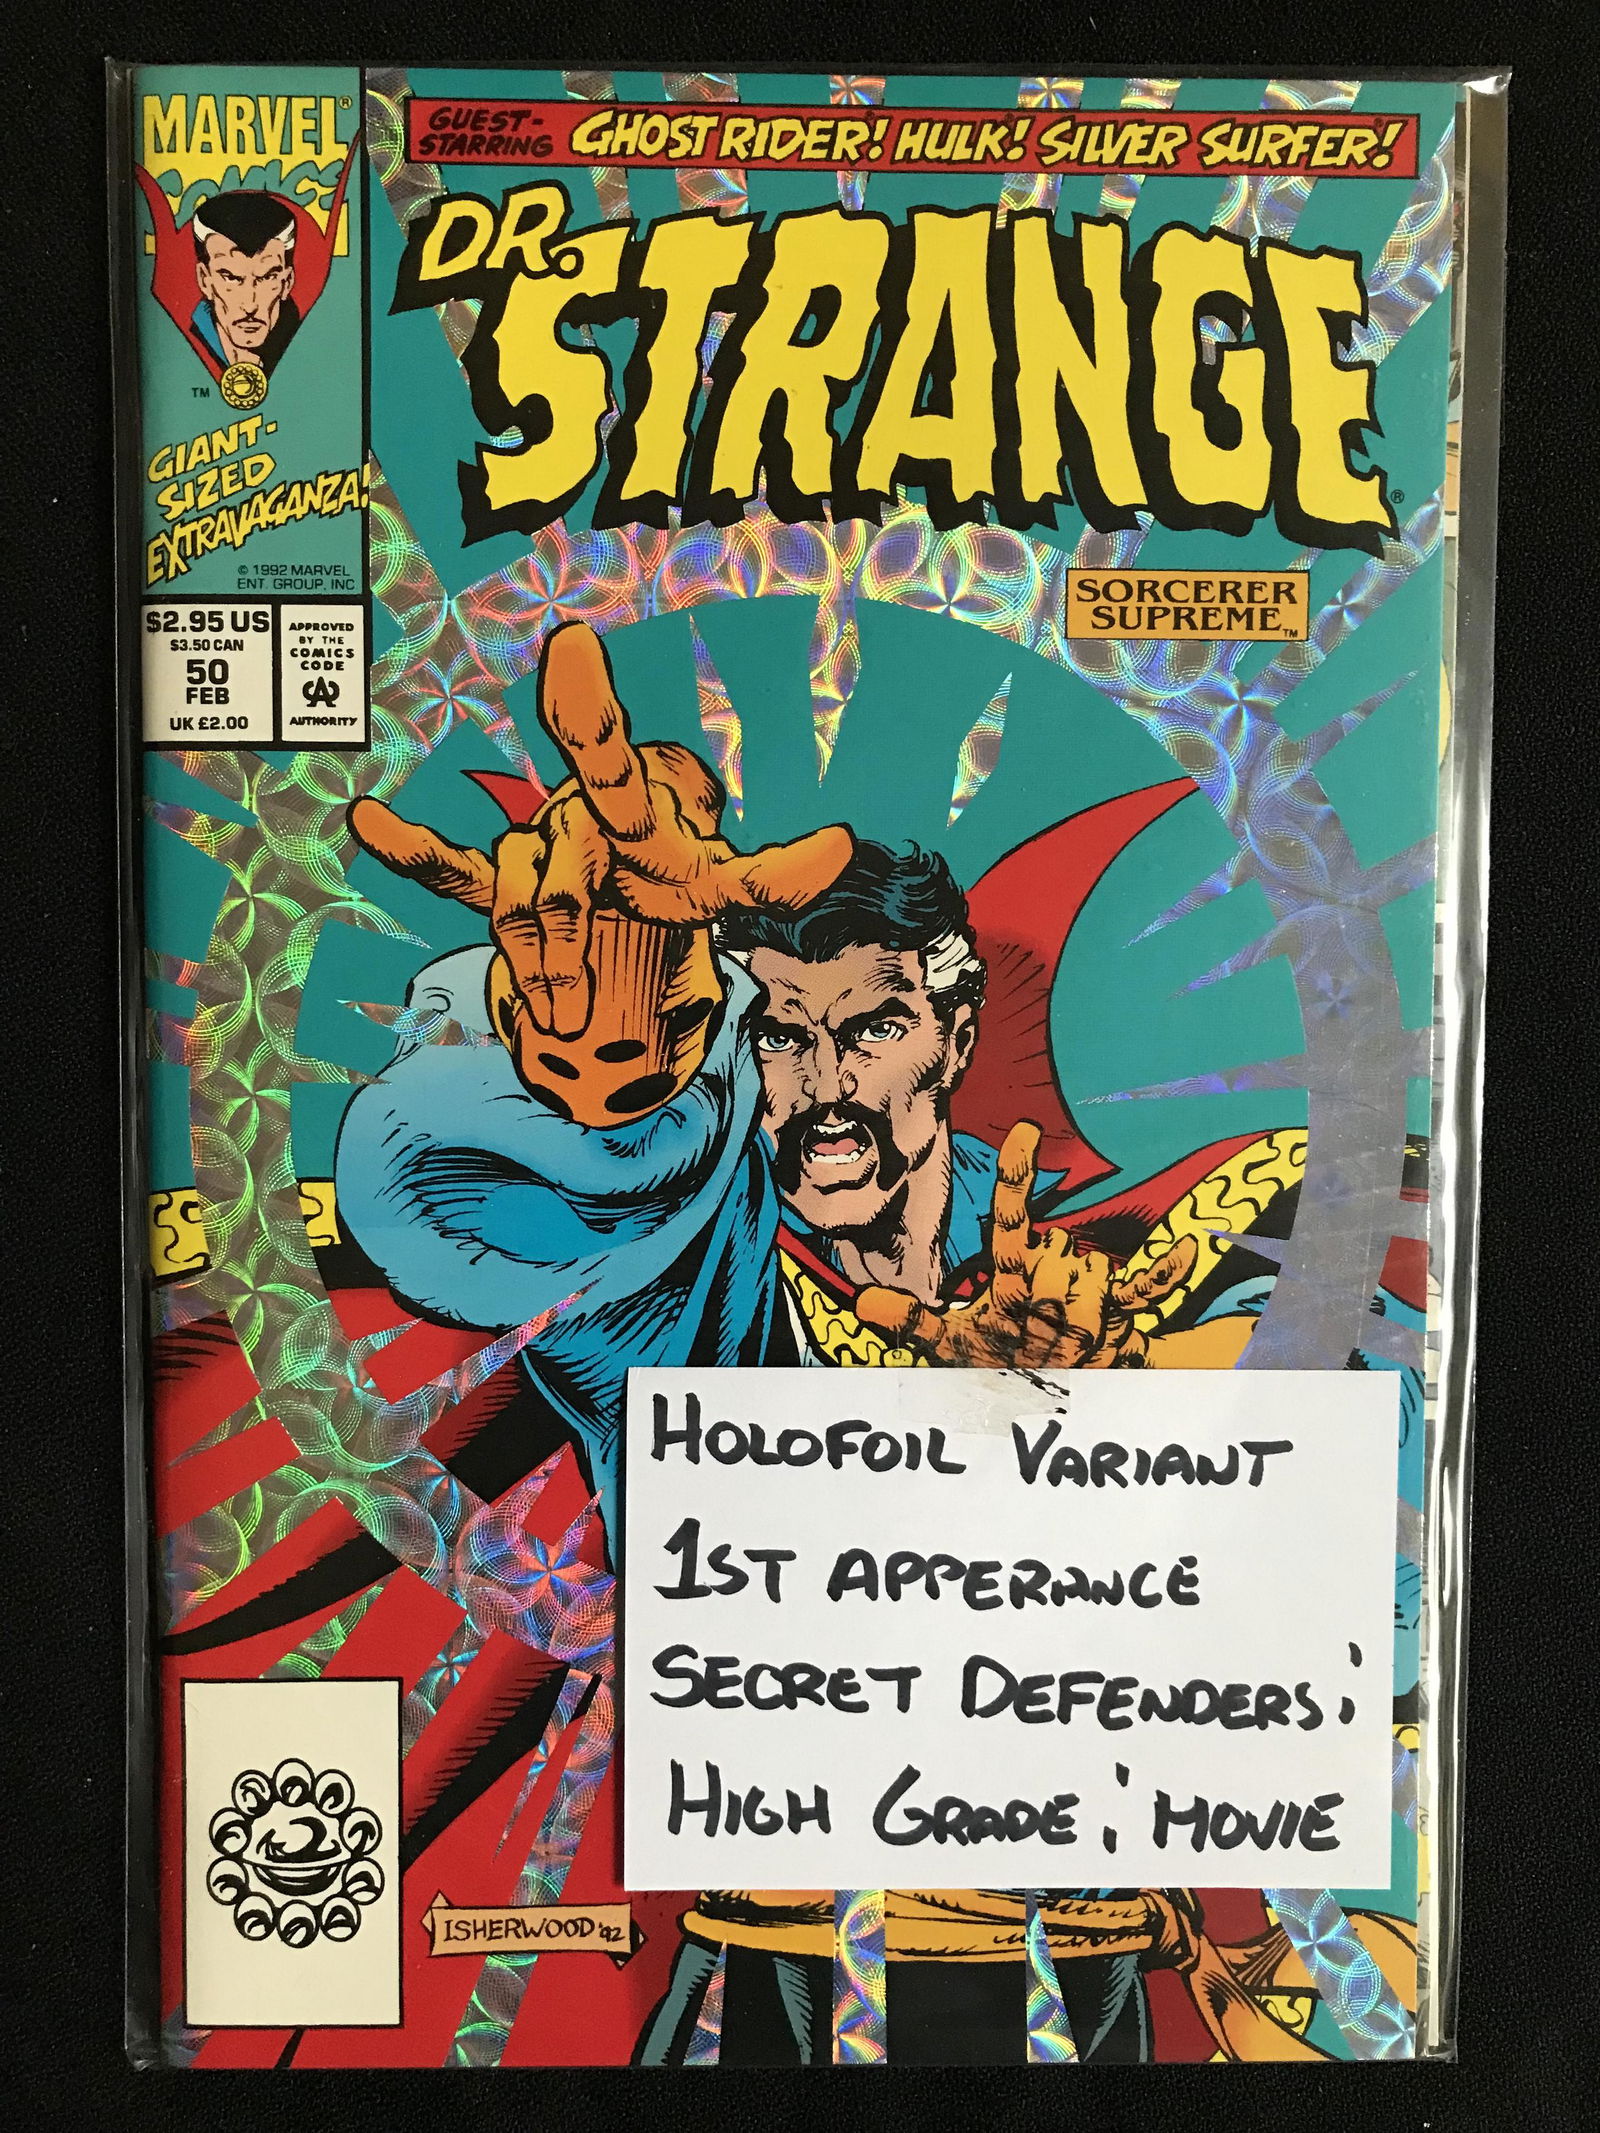 MARVEL®
COMICS
GUEST-
STARRING
GHOST RIDER! HULK! SILVER SURFER!
DR.
STRANGE®
SORCERER
SUPREME™
TM
GIANT-
SIZED
EXTRAVAGANZA!
© 1992 MARVEL
ENT. GROUP, INC
$2.95 US
$3.50 CAN
50
FEB
UK £2.00
APPROVED
BY THE
COMICS
CODE
CA
AUTHORITY
HOLOFOIL VARIANT
1ST APPERANCE
SECRET DEFENDERS;
HIGH GRADE; MOVIE
ISHERWOOD '92